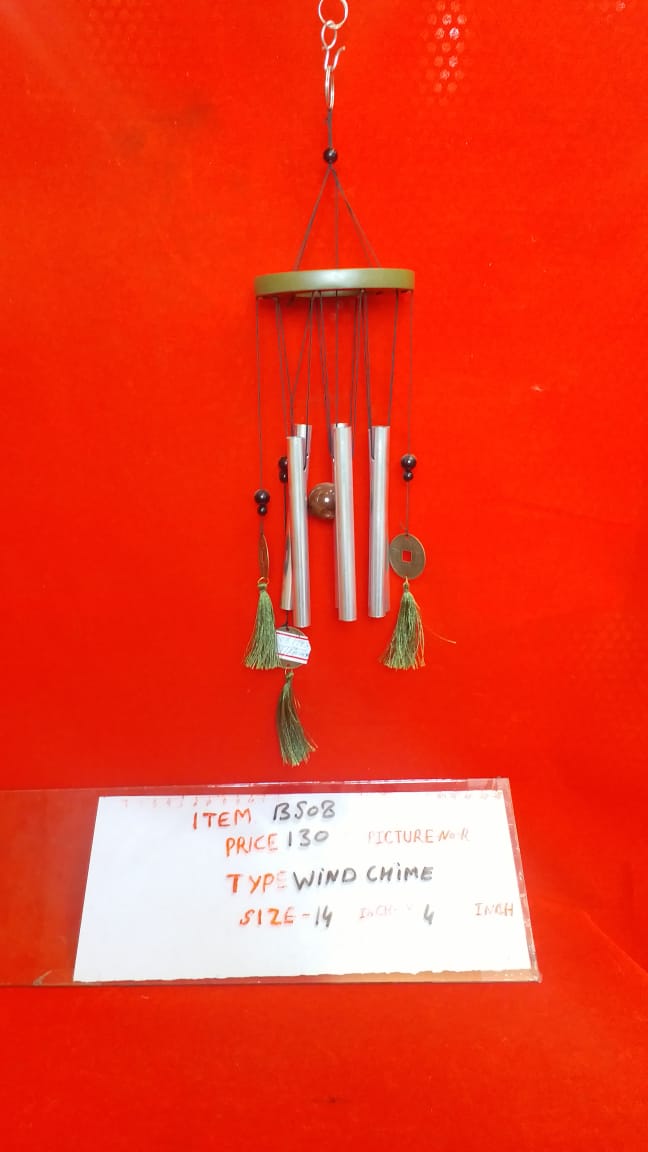 ITEM BSOB
PRICE 130 PICTURE No R
TYPE WIND CHIME
SIZE - 14 INCH 4 INCH